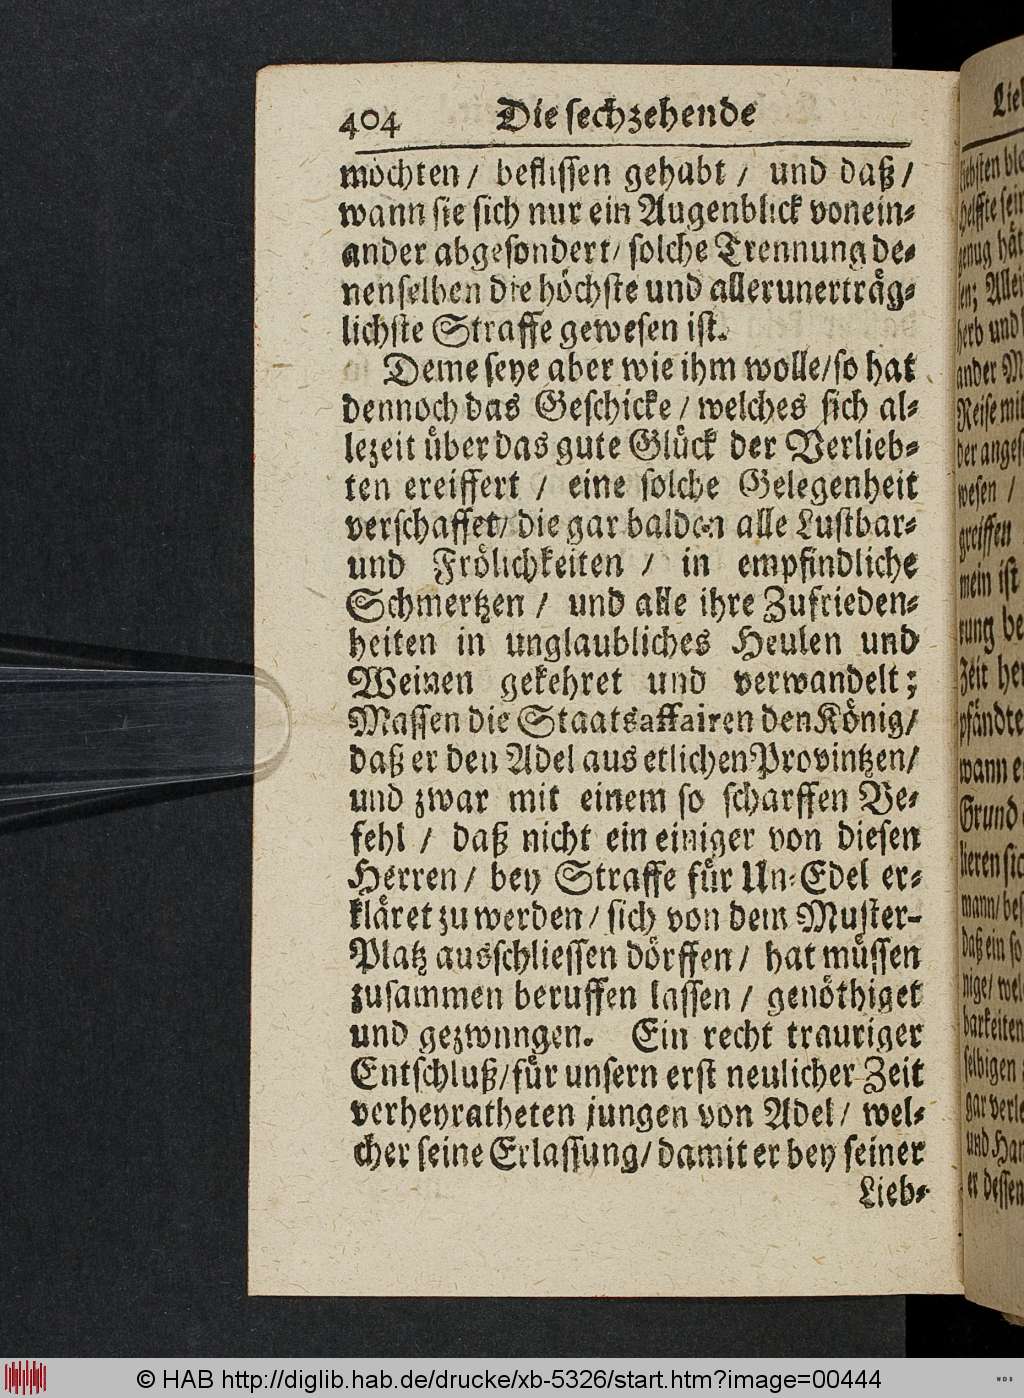 404 Die sechzehende
möchten / beflissen gehabt / und daß /
wann sie sich nur ein Augenblick vonein-
ander abgesondert / solche Trennung de-
nenselben die höchste und allerunerträg-
lichste Straffe gewesen ist.
Deme seye aber wie ihm wolle / so hat
dennoch das Geschicke / welches sich al-
lezeit über das gute Glück der Verlieb-
ten ereiffert / eine solche Gelegenheit
verschaffet / die gar balden alle Lustbar-
und Frölichkeiten / in empfindliche
Schmertzen / und alle ihre Zufrieden-
heiten in unglaubliches Heulen und
Weinen gekehret und verwandelt;
Massen die Staatsaffairen den König /
daß er den Adel aus etlichen Provintzen /
und zwar mit einem so scharffen Be-
fehl / daß nicht ein einiger von diesen
Herren / bey Straffe für Un-Edel er-
kläret zu werden / sich von dem Muster-
Platz ausschliessen dörffen / hat müssen
zusammen beruffen lassen / genöthiget
und gezwnngen. Ein recht trauriger
Entschluß / für unsern erst neulicher Zeit
verheyratheten jungen von Adel / wel-
cher seine Erlassung / damit er bey seiner
Lieb-
Lie
liebsten
helffte sein
genug hät
sen; Allei
herb und
ander
Reise mit
der anges
wesen /
greiffen
mein ist
rung be
Zeit her
pfändte
wann e
Grund
lieren sic
mann / bes
daß ein so
nige / wel
barkeiten
selbigen
gar verle
und Har
er dessen
© HAB http://diglib.hab.de/drucke/xb-5326/start.htm?image=00444